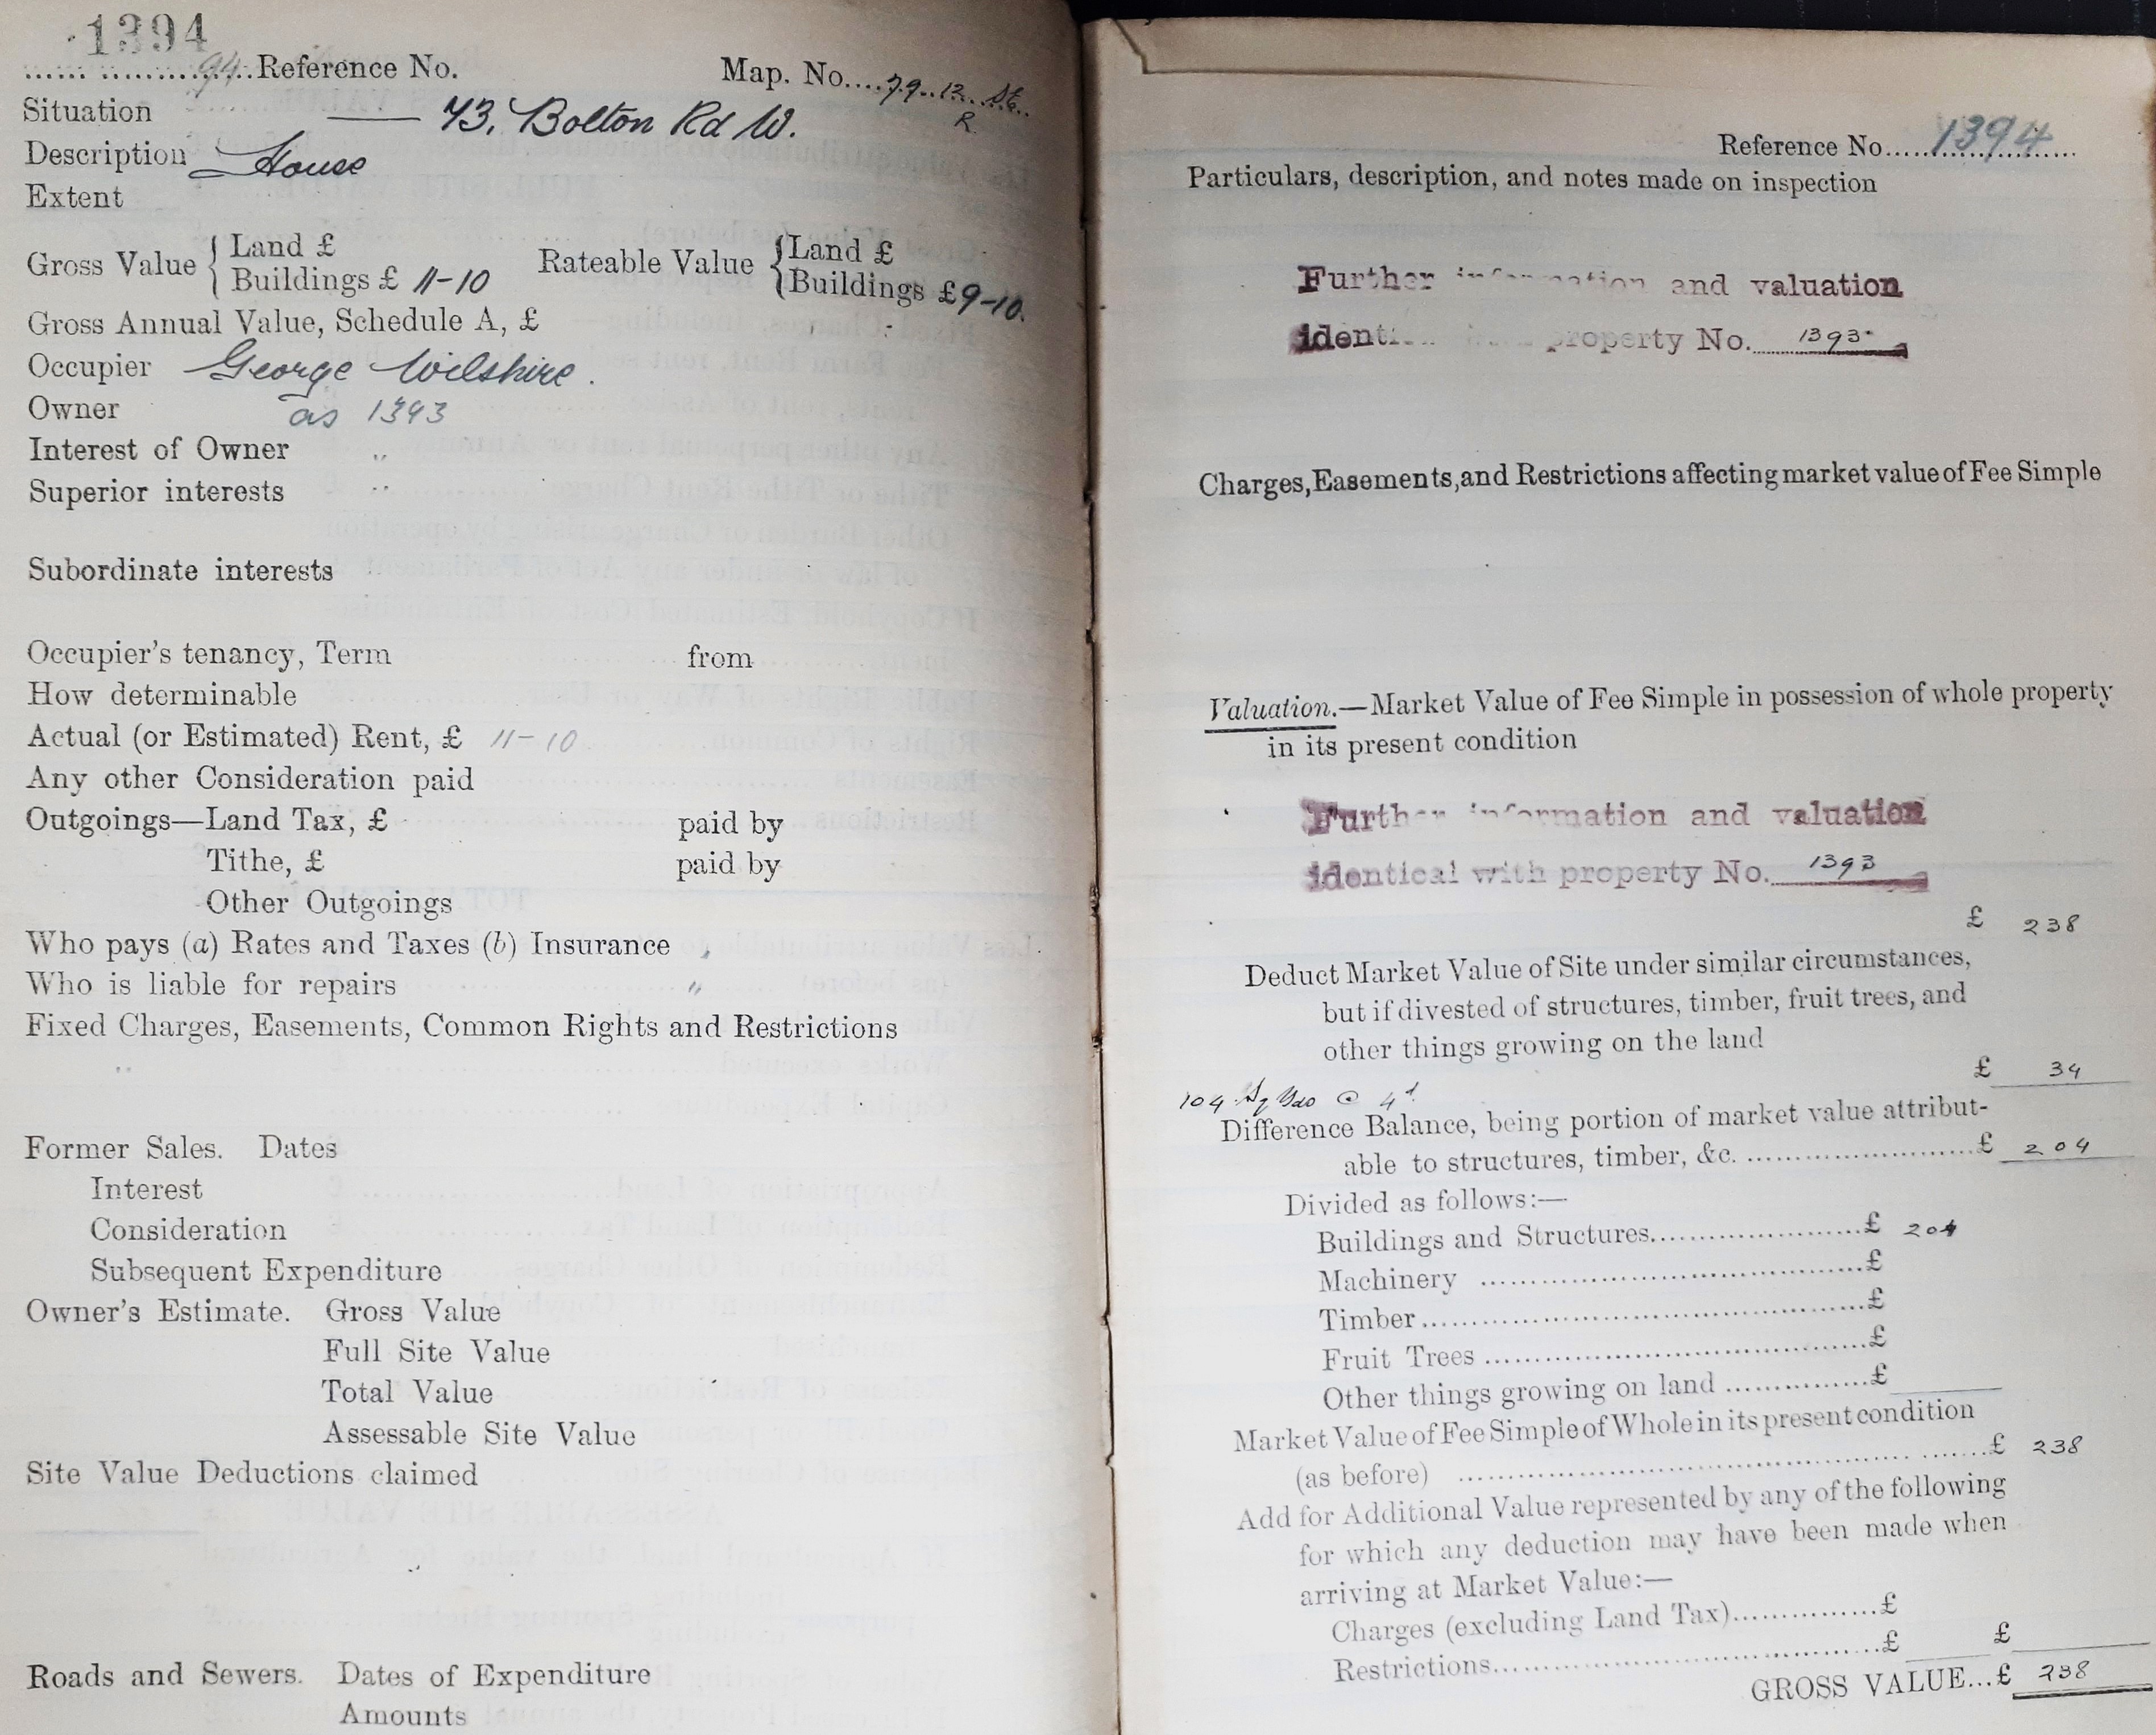 1394
94 Reference No. Map. No. 79.12
Situation 43, Bolton Rd W.
Description House
Extent
Gross Value { Land £
Buildings £ 11-10
Rateable Value { Land £
Buildings £ 9-10.
Gross Annual Value, Schedule A, £
Occupier George Wilshire.
Owner as 1393
Interest of Owner "
Superior interests "
Subordinate interests
Occupier's tenancy, Term from
How determinable
Actual (or Estimated) Rent, £ 11-10
Any other Consideration paid
Outgoings—Land Tax, £ paid by
Tithe, £ paid by
Other Outgoings
Who pays (a) Rates and Taxes (b) Insurance "
Who is liable for repairs "
Fixed Charges, Easements, Common Rights and Restrictions
"
Former Sales. Dates
Interest
Consideration
Subsequent Expenditure
Owner's Estimate. Gross Value
Full Site Value
Total Value
Assessable Site Value
Site Value Deductions claimed
Roads and Sewers. Dates of Expenditure
Amounts
Reference No. 1394
Particulars, description, and notes made on inspection
Further information and valuation
identical with property No. 1393
Charges, Easements, and Restrictions affecting market value of Fee Simple
Valuation.—Market Value of Fee Simple in possession of whole property
in its present condition
Further information and valuation
identical with property No. 1393
£ 238
Deduct Market Value of Site under similar circumstances,
but if divested of structures, timber, fruit trees, and
other things growing on the land
£ 34
104 Sq Yds @ 4d
Difference Balance, being portion of market value attribut-
able to structures, timber, &c. £ 204
Divided as follows:—
Buildings and Structures £ 204
Machinery £
Timber £
Fruit Trees £
Other things growing on land £
Market Value of Fee Simple of Whole in its present condition
(as before) £ 238
Add for Additional Value represented by any of the following
for which any deduction may have been made when
arriving at Market Value:—
Charges (excluding Land Tax) £
Restrictions £ £
GROSS VALUE...£ 238